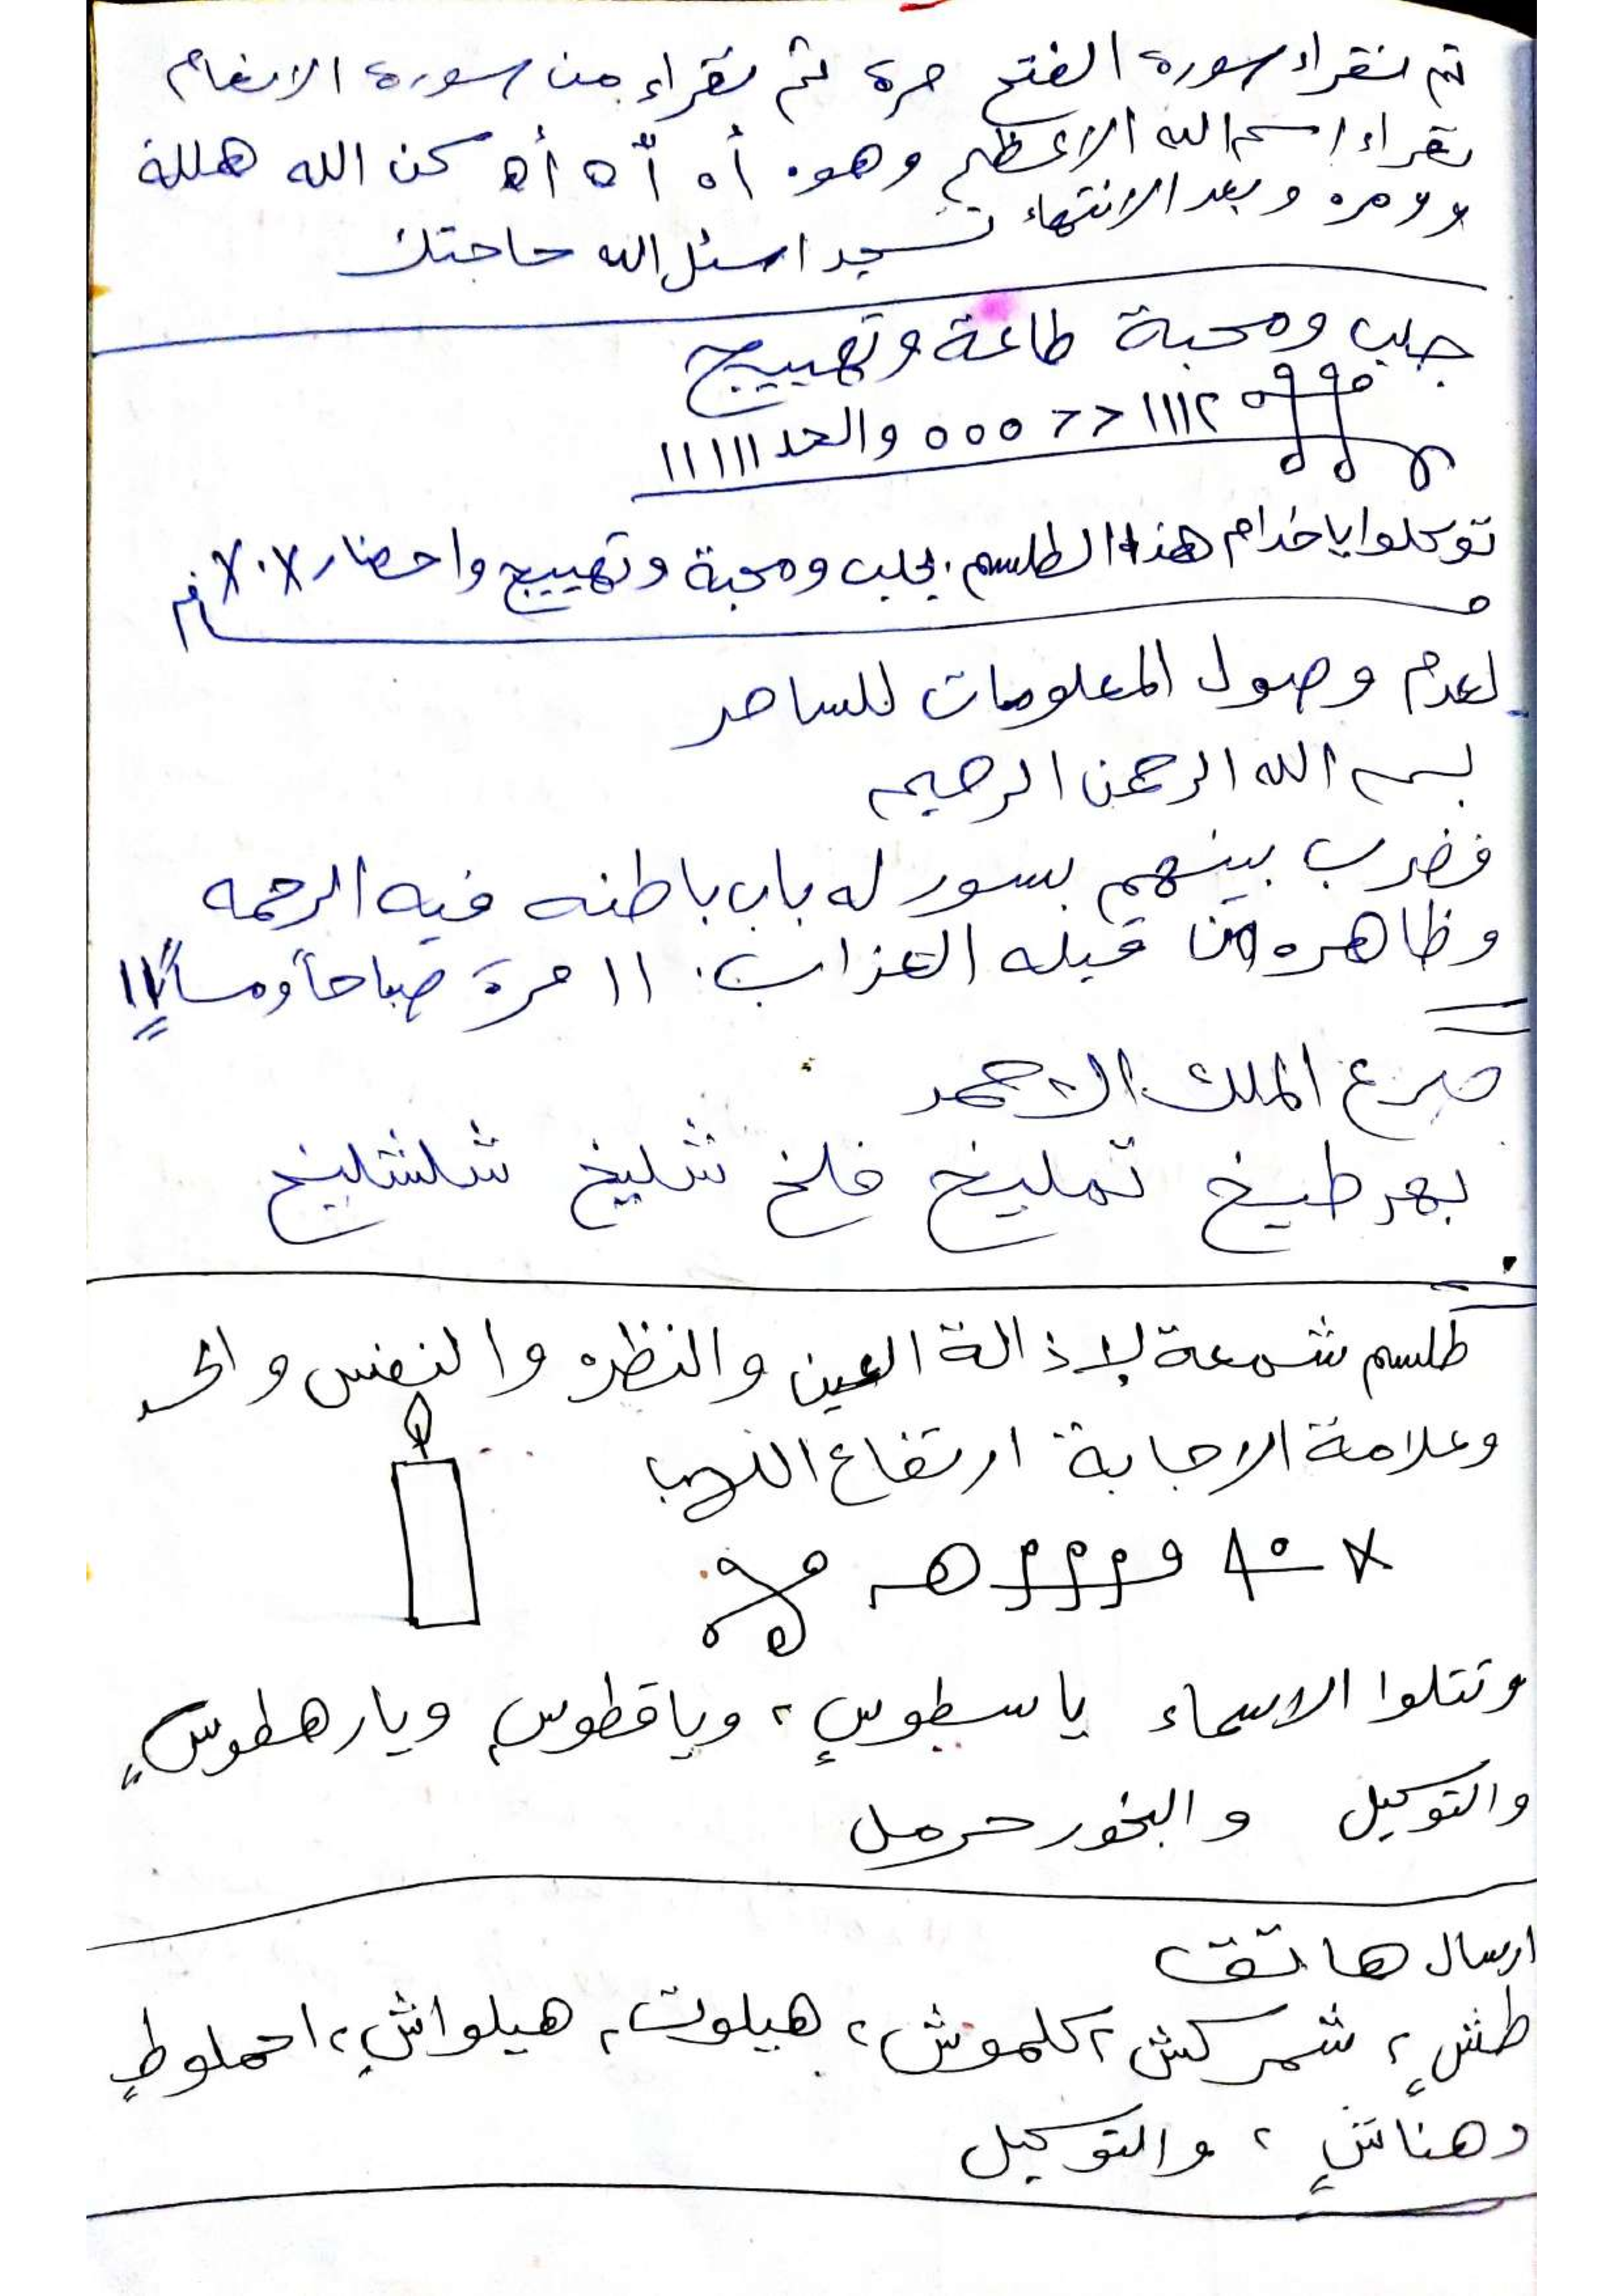 ثم نقراء سورة الفتح مرة ثم نقراء من سورة الانعام
نقراء اسم الله الاعظم وهو. أه أّه أه كن الله هللة
مره وبعد الانتهاء تسجد اسئل الله حاجتك
جلب ومحبة طاعة وتهييج
١١١٢ > > ٥ ٥ ٥ والحد ١١١١١١
توكلوا يا خدام هذا الطلسم. بجلب ومحبة وتهييج واحضار
لعدم وصول المعلومات للساحر
بسم الله الرحمن الرحيم
فضرب بينهم بسور له باب باطنه فيه الرحمه
وظاهره من قبله العذاب. ١١ مرة صباحاً ومساءً ١١
صرع الملك الاحمر
بهرطيخ تمليخ فلخ شليخ شلشليخ
طلسم شمعة لاذالة العين والنظره والنفس
وعلامة الاجابة ارتفاع اللهب
وتتلوا الاسماء ياسطوسٍ، وياقطوسٍ ويارهطوسٍ
والتوكيل والبخور حرمل
ارسال هاتف
طشٍ، شمركش، كلموش، هيلوت، هيلواشٍ، احملوطٍ
وهناشٍ، والتوكيل